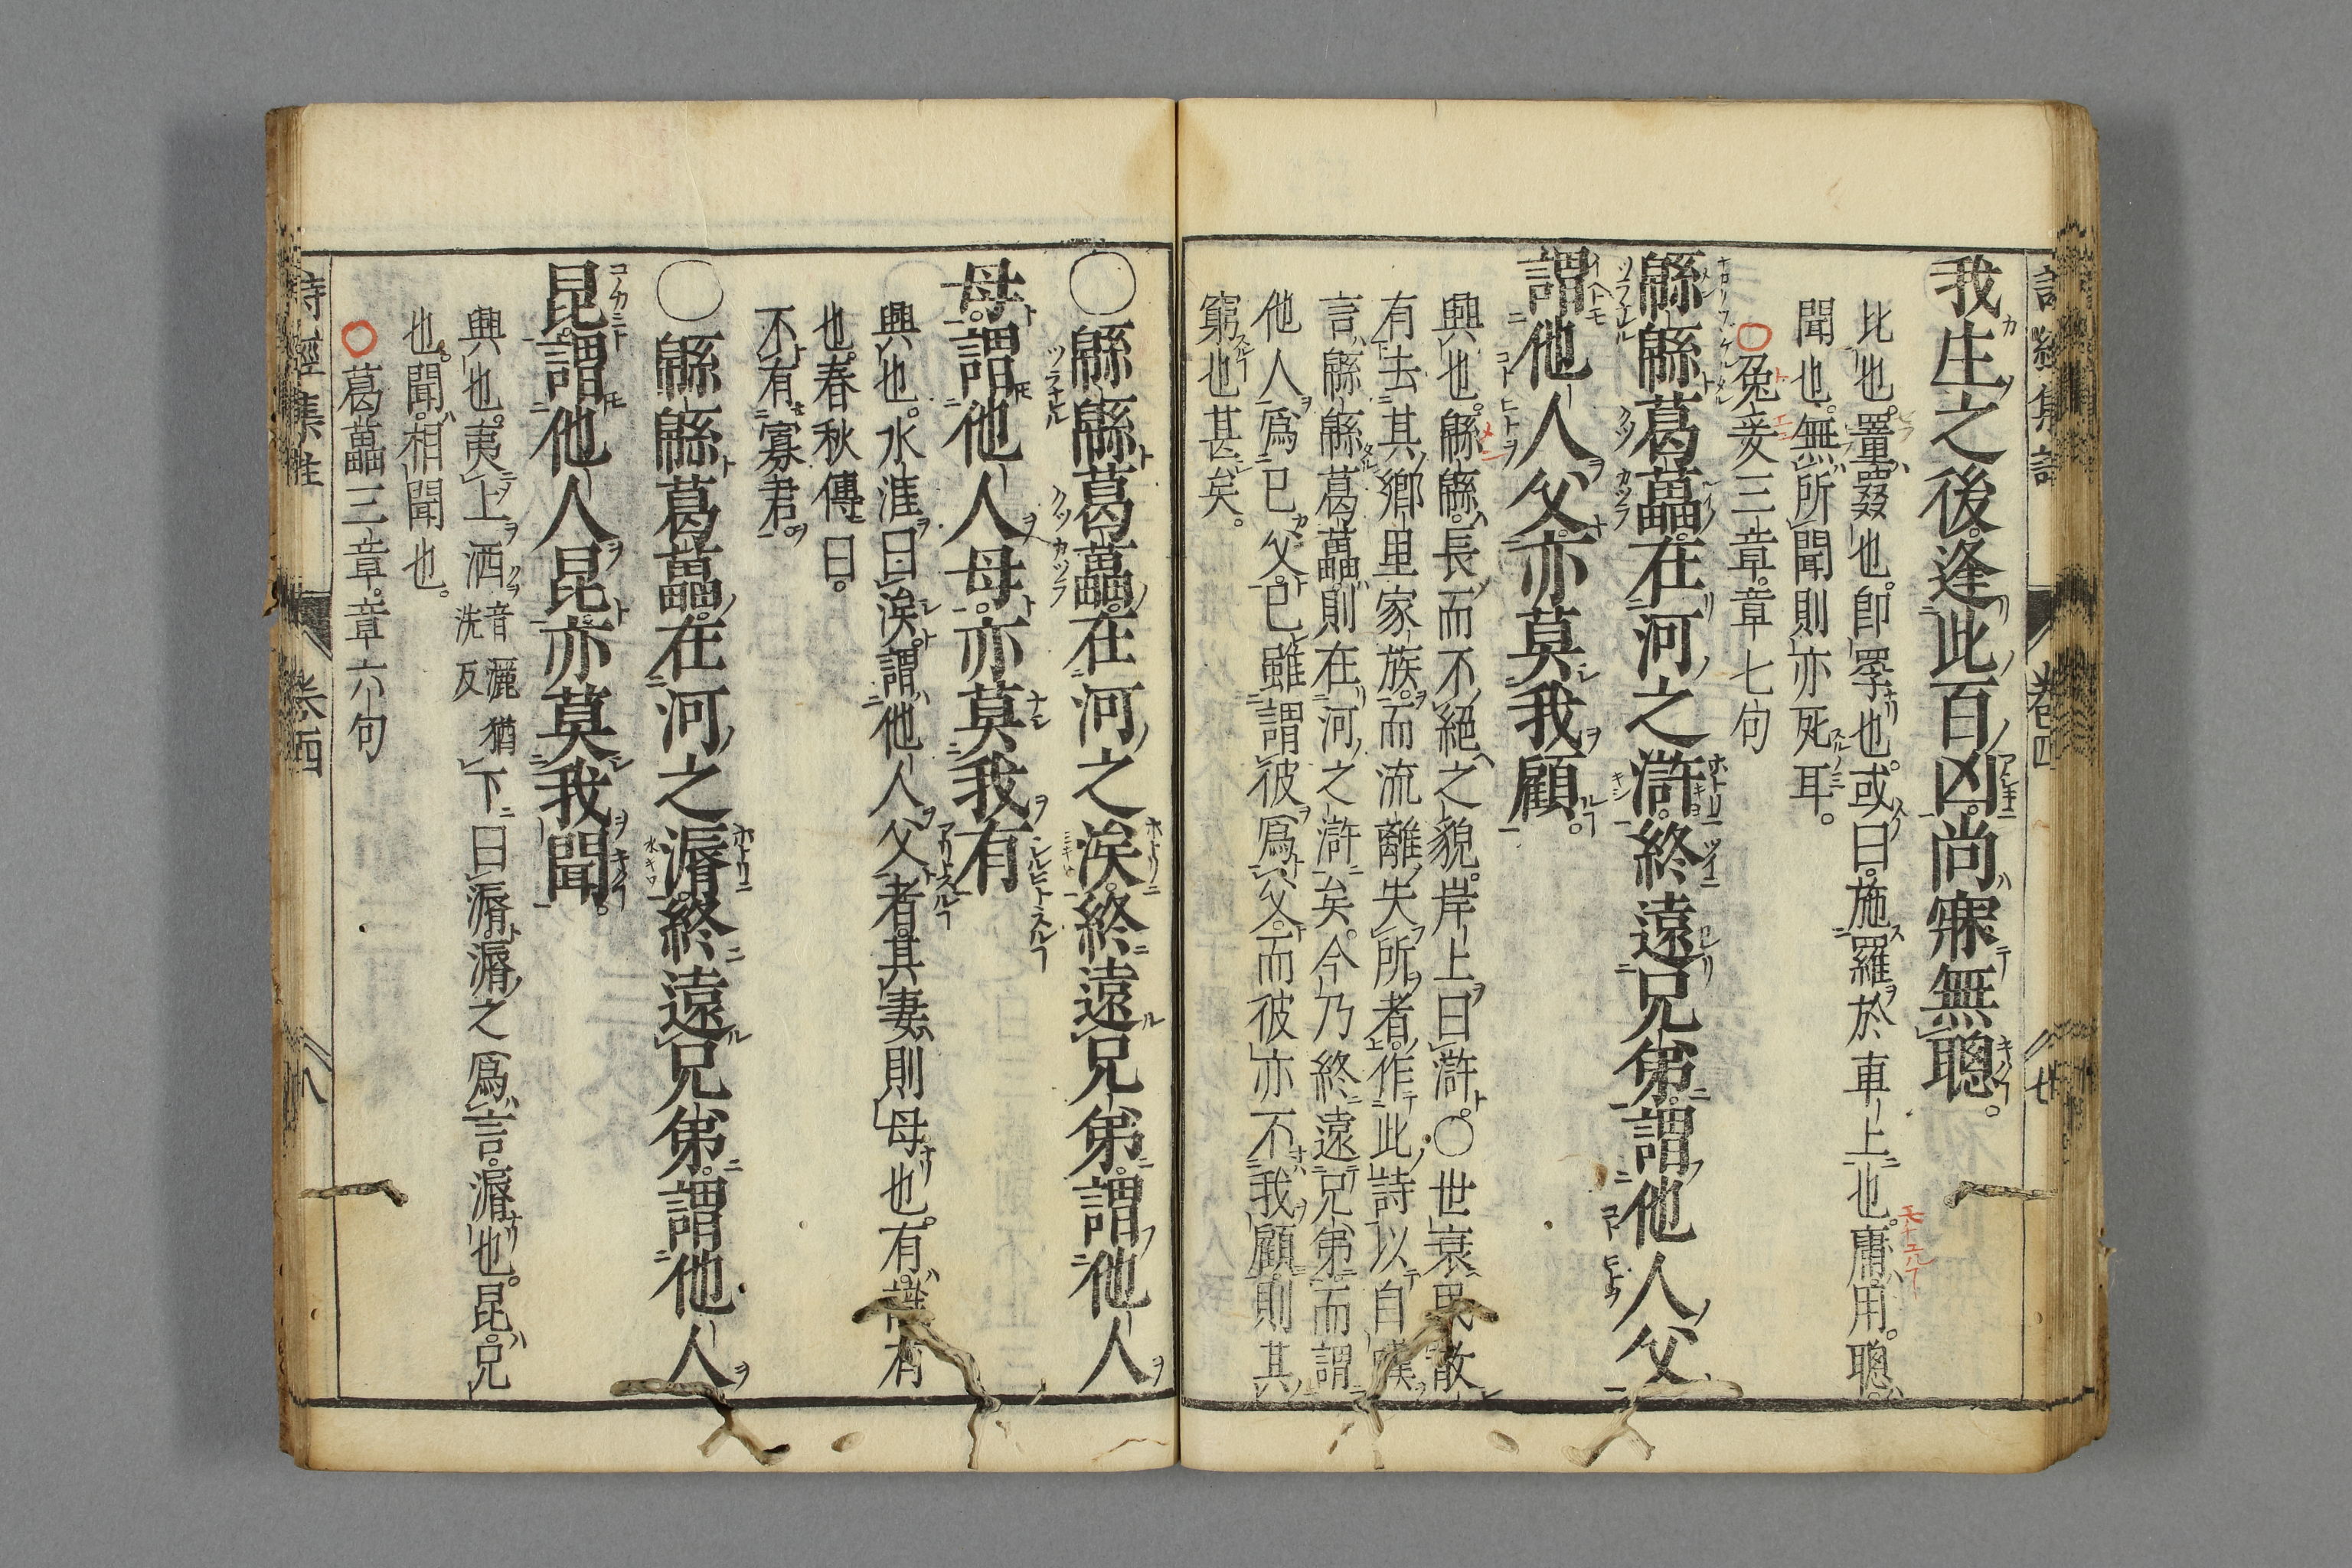 我生之後逢此百凶尚寐無聰
比也罿罬也卽罦也或曰施羅於車上也庸用聰
聞也無所聞則亦死耳
○兔爰三章章七句
緜緜葛藟在河之滸終遠兄弟謂他人父
謂他人父亦莫我顧
興也緜緜長而不絕之貌岸上曰滸○世衰民散
有去其鄉里家族而流離失所者作此詩以自嘆
言緜緜葛藟則在河之滸矣今乃終遠兄弟而謂
他人爲已父已雖謂彼爲父而彼亦不我顧則其
窮也甚矣
○緜緜葛藟在河之涘終遠兄弟謂他人
母謂他人母亦莫我有
興也水涯曰涘謂他人父者其妻則母也有識有
也春秋傳曰
不有寡君
○緜緜葛藟在河之漘終遠兄弟謂他人
昆謂他人昆亦莫我聞
興也夷上洒音灑猶洗反下曰漘漘之爲言漘也昆兄
也聞相聞也
○葛藟三章章六句
詩經集註 卷四 八